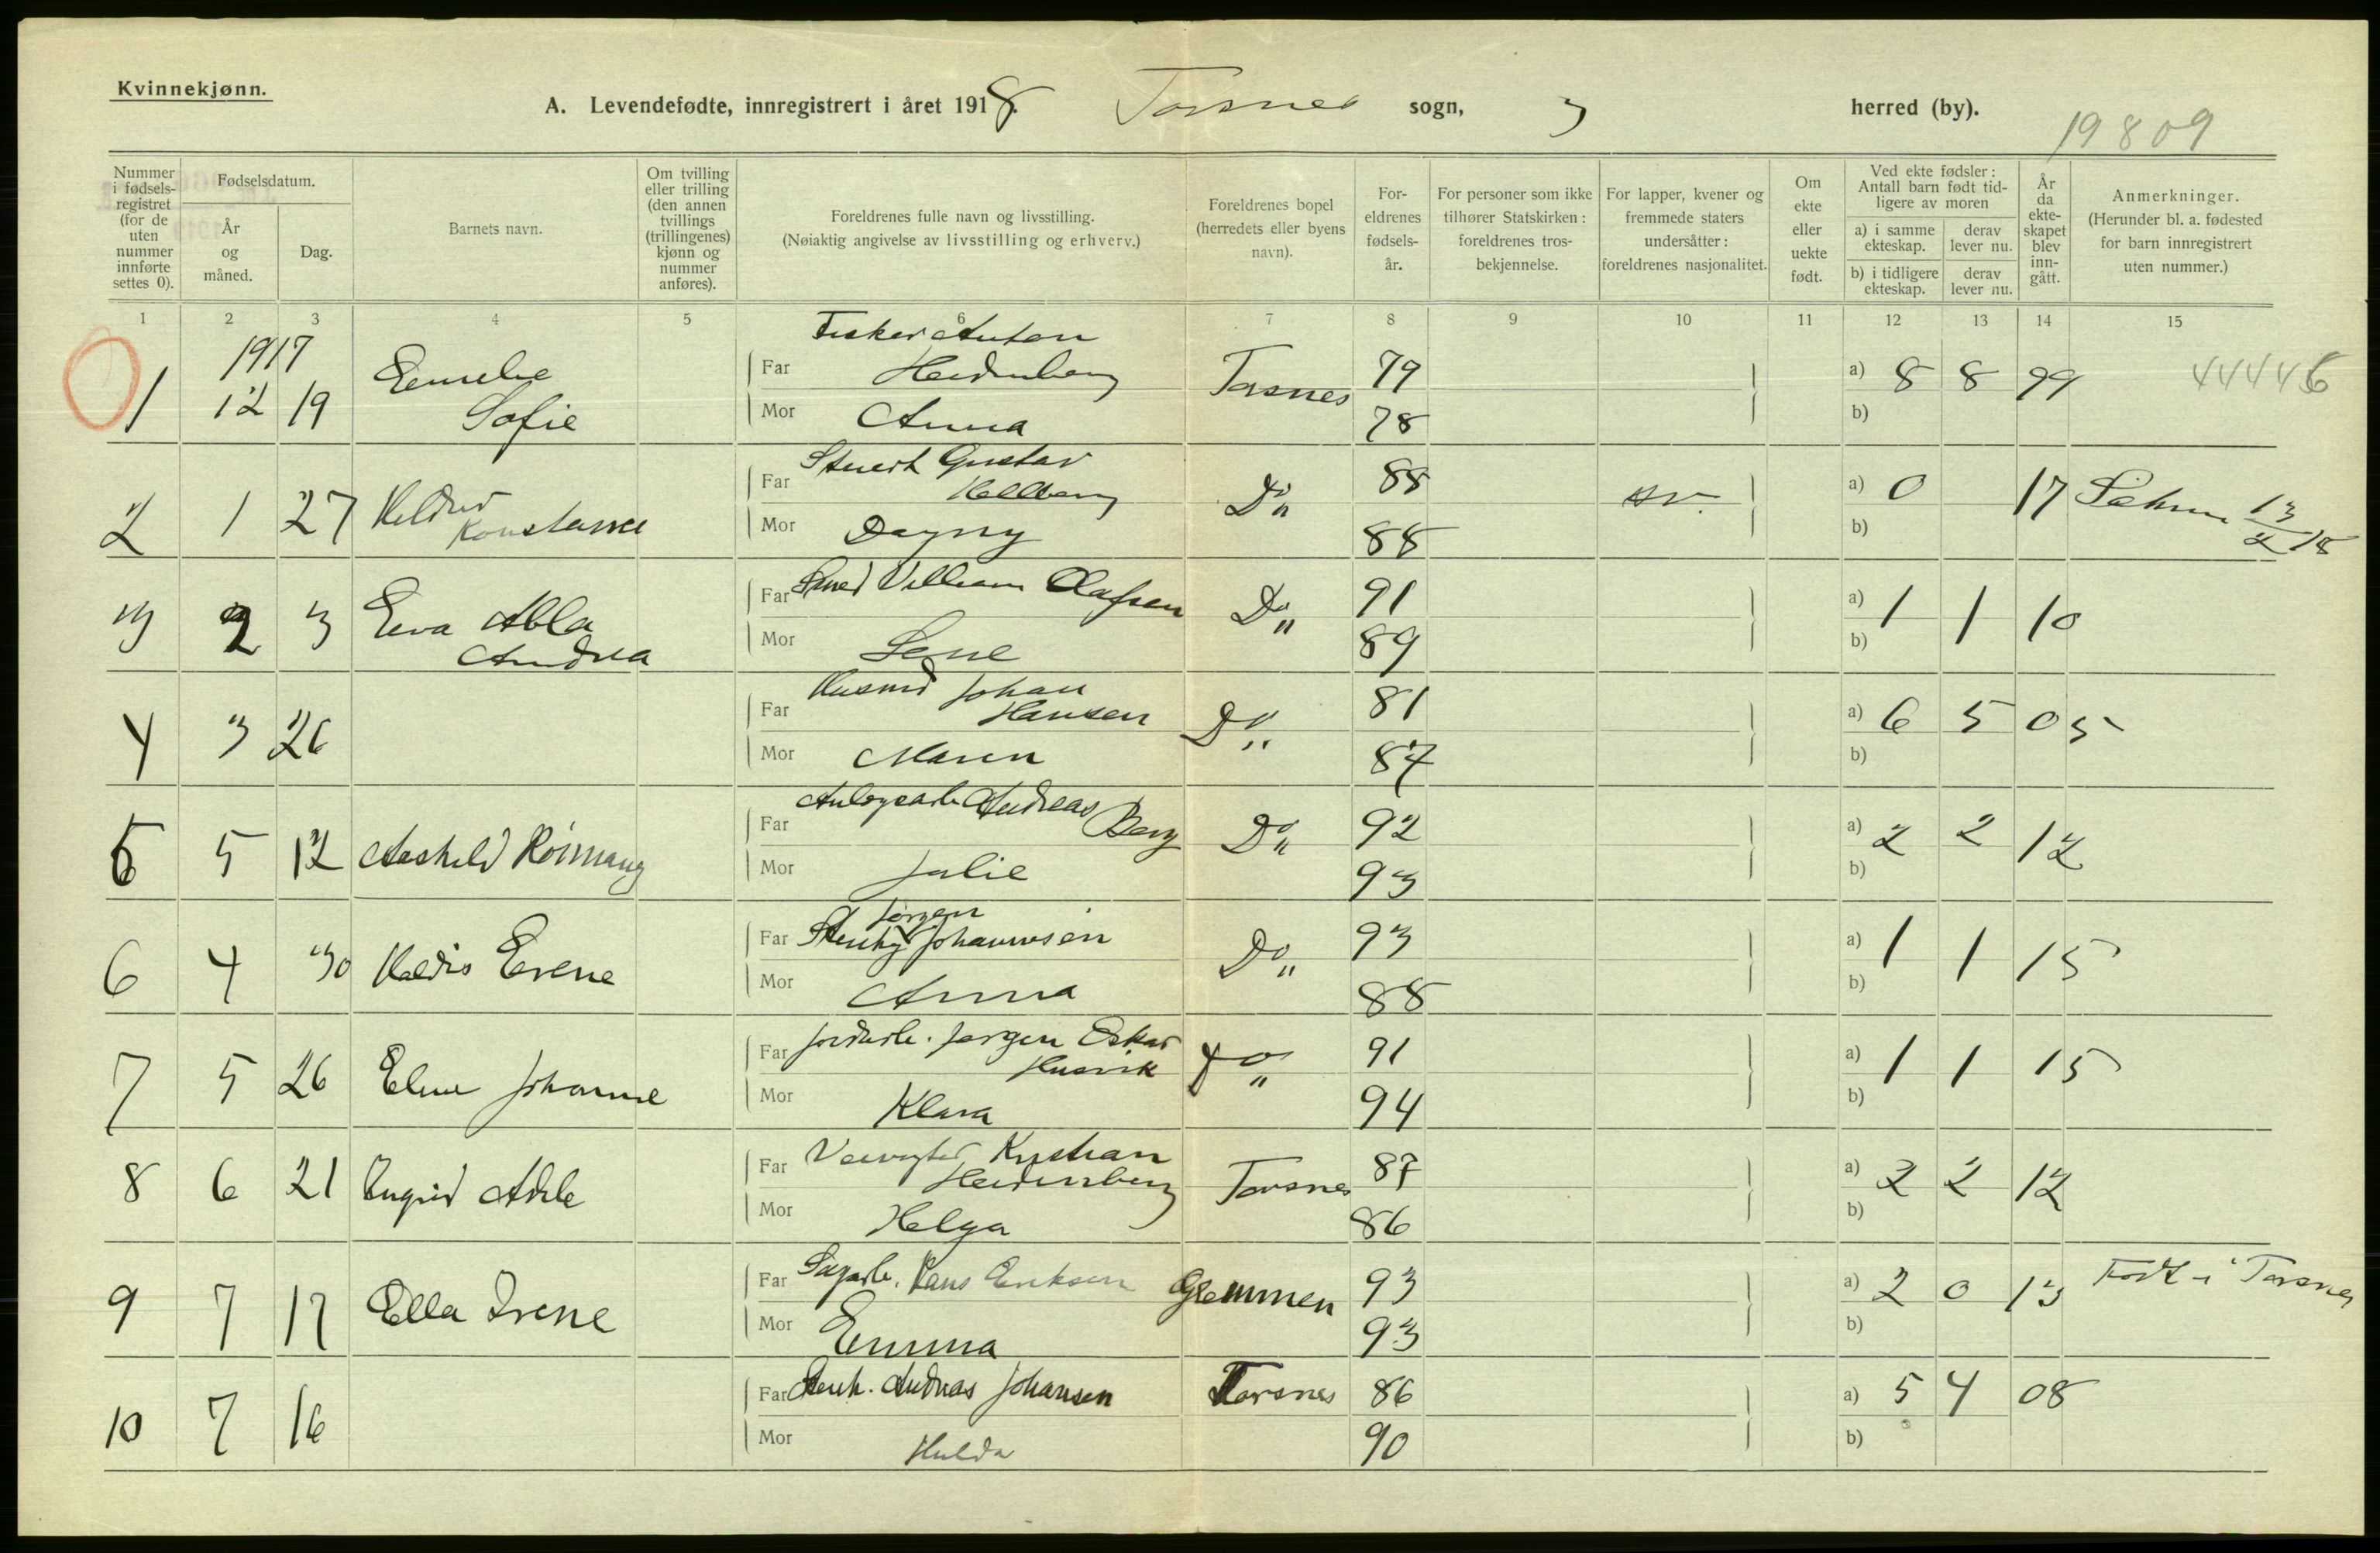 Kvinnekjønn.
A. Levendefødte, innregistrert i året 1918. Torsnes sogn, herred (by).
19809
Nummer i fødsels-registret (for de uten nummer innførte settes 0).
Fødselsdatum.
År og måned.
Dag.
Barnets navn.
Om tvilling eller trilling (den annen tvillings (trillingenes) kjønn og nummer anføres).
Foreldrenes fulle navn og livsstilling.
(Nøiaktig angivelse av livsstilling og erhverv.)
Foreldrenes bopel (herredets eller byens navn).
For-eldrenes fødsels-år.
For personer som ikke tilhører Statskirken: foreldrenes tros-bekjennelse.
For lapper, kvener og fremmede staters undersåtter: foreldrenes nasjonalitet.
Om ekte eller uekte født.
Ved ekte fødsler: Antall barn født tid-ligere av moren
a) i samme ekteskap.
derav lever nu.
b) i tidligere ekteskap.
derav lever nu.
År da ekte-skapet blev inn-gått.
Anmerkninger.
(Herunder bl. a. fødested for barn innregistrert uten nummer.)
1 2 3 4 5 6 7 8 9 10 11 12 13 14 15
1917
Fisker Anton
1 12 19 Far Torsnes 79 a) 8 8 99 44446
Sofie Mor Anna 78 b)
Gustav
2 1 27 Far Do 88 sv. a) 0 17 13/2 18
Konstanse Mor Dagny 88 b)
3 2 3 Eva Abla Far Smed Villiam Olafsen Do 91 a) 1 1 10
Andrea Mor Lene 89 b)
Husmd Johan
4 3 26 Far Hansen Do 81 a) 6 5 05
Mor Maren 87 b)
Andreas
5 5 12 Aashild Far Berg Do 92 a) 2 2 12
Mor Julie 93 b)
Jørgen
6 4 30 Valdis Erene Far Johannesen Do 93 a) 1 1 15
Mor Anna 88 b)
7 5 26 Johanne Far Jordarb. Jørgen Oskar Husvik Do 91 a) 1 1 15
Mor Klara 94 b)
8 6 21 Ingrid Adele Far Kristian Torsnes 87 a) 2 2 12
Mor Helga 86 b)
9 7 17 Ella Irene Far Sagarb. Hans Eriksen Glemmen 93 a) 2 0 13 Født i Torsnes
Mor Emma 93 b)
10 7 16 Far Andreas Johansen Torsnes 86 a) 5 4 08
Mor Hulda 90 b)